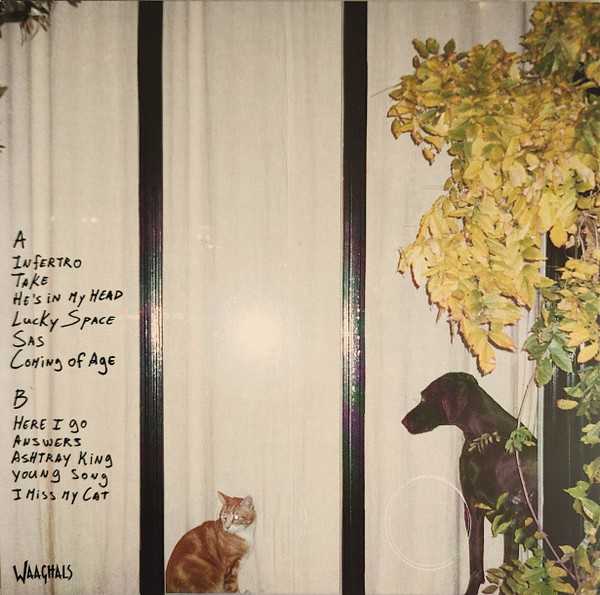 A
INFERTRO
TAKE
HE'S IN MY HEAD
LUCKY SPACE
SAS
COMING OF AGE
B
HERE I GO
ANSWERS
ASHTRAY KING
YOUNG SONG
I MISS MY CAT
WAAGHALS